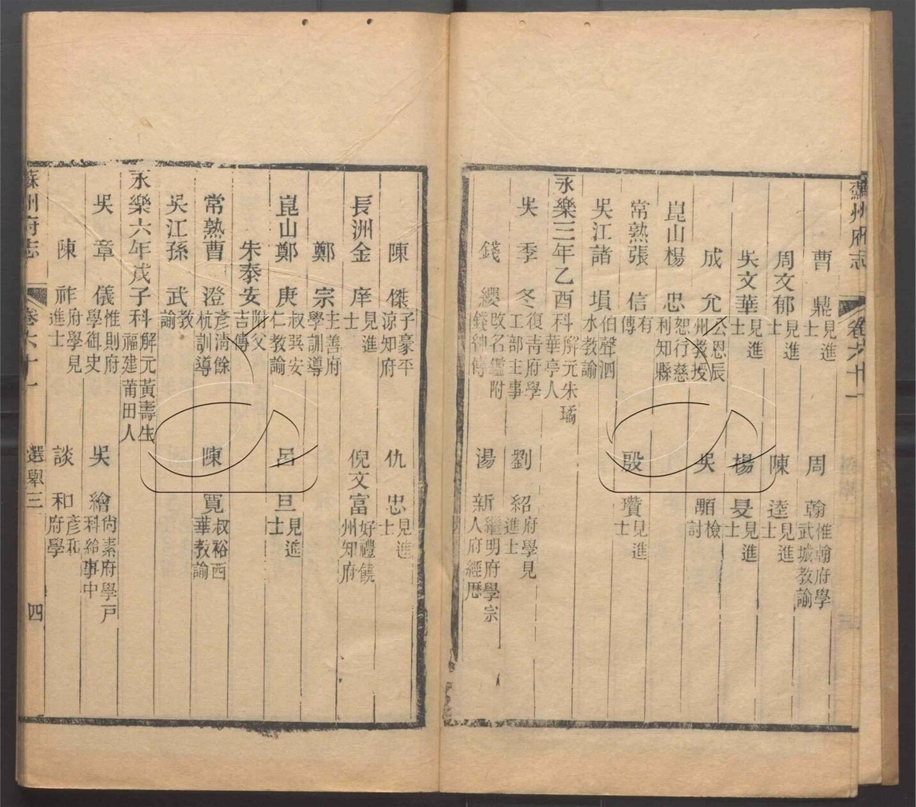 蘇州府志 卷六十一
曹鼎 見進士 周翰 惟翰府學武城教諭
周文郁 見進士 陳逵 見進士
吳文華 見進士 楊旻 見進士
成允 公恩辰州教授 吳顒 檢討
崑山楊忠 恕行慈利知縣
常熟張信 有傳 殷瓚 見進士
吳江諸塤 伯聲泗水教諭
永樂三年乙酉科 解元朱璚華亭人
吳季冬 復青府學工部主事 劉紹 府學見進士
錢纓 改名 附錢紳傳 湯新 繼明府學宗人府經歷
陳傑 子豪平涼知府 仇忠 見進士
長洲金庠 見進士 倪文富 好禮饒州知府
鄭宗 主善府學訓導
崑山鄭庚 叔巽安仁教諭 呂亘 見進士
朱泰安 附父吉傳
常熟曹澄 彥清餘杭訓導 陳寬 叔裕西華教諭
吳江孫武 教諭
永樂六年戊子科 解元黃壽生福建莆田人
吳章 儀惟則府學御史 吳繪 尚素府學戶科給事中
陳祚 府學見進士 談和 彥和府學
蘇州府志 卷六十一 選舉三 四